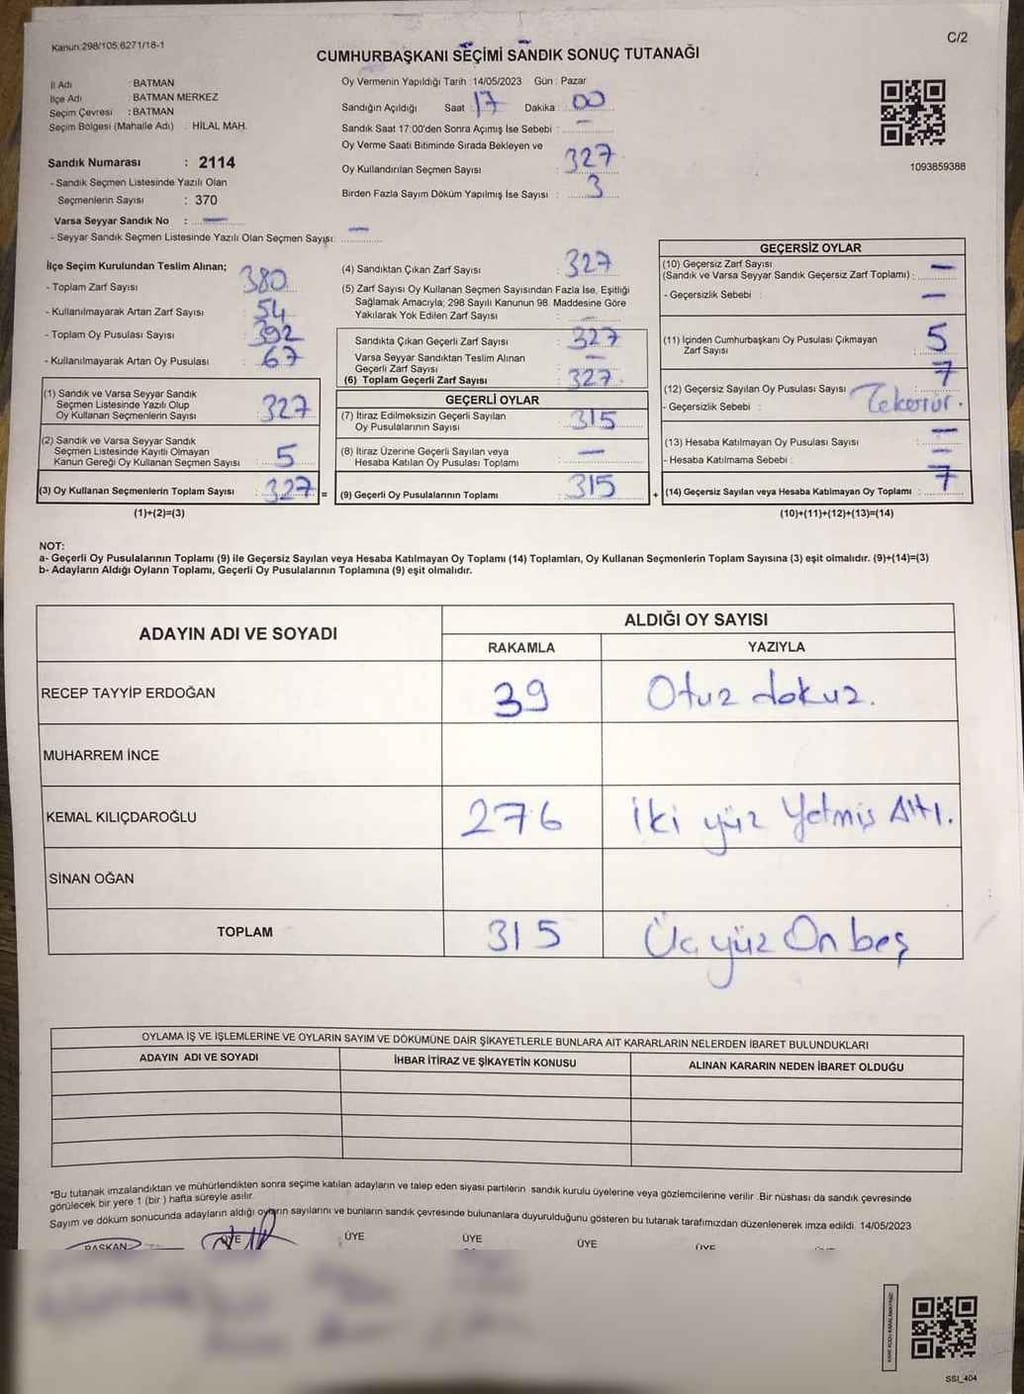 Kanun:298/105,6271/18-1
C/2
CUMHURBAŞKANI SEÇİMİ SANDIK SONUÇ TUTANAĞI
İl Adı : BATMAN
İlçe Adı : BATMAN MERKEZ
Seçim Çevresi : BATMAN
Seçim Bölgesi (Mahalle Adı) : HİLAL MAH.
Sandık Numarası : 2114
- Sandık Seçmen Listesinde Yazılı Olan
Seçmenlerin Sayısı : 370
Varsa Seyyar Sandık No : —
- Seyyar Sandık Seçmen Listesinde Yazılı Olan Seçmen Sayışı: —
Oy Vermenin Yapıldığı Tarih : 14/05/2023 Gün : Pazar
Sandığın Açıldığı Saat : 17 Dakika : 00
Sandık Saat 17:00'den Sonra Açımış İse Sebebi : —
Oy Verme Saati Bitiminde Sırada Bekleyen ve
Oy Kullandırılan Seçmen Sayısı : 327
Birden Fazla Sayım Döküm Yapılmış İse Sayısı : 3
1093859388
İlçe Seçim Kurulundan Teslim Alınan;
- Toplam Zarf Sayısı 380
- Kullanılmayarak Artan Zarf Sayısı 54
- Toplam Oy Pusulası Sayısı 392
- Kullanılmayarak Artan Oy Pusulası 67
(1) Sandık ve Varsa Seyyar Sandık
Seçmen Listesinde Yazılı Olup
Oy Kullanan Seçmenlerin Sayısı 327
(2) Sandık ve Varsa Seyyar Sandık
Seçmen Listesinde Kayıtlı Olmayan
Kanun Gereği Oy Kullanan Seçmen Sayısı 5
(3) Oy Kullanan Seçmenlerin Toplam Sayısı : 327 =
(1)+(2)=(3)
(4) Sandıktan Çıkan Zarf Sayısı : 327
(5) Zarf Sayısı Oy Kullanan Seçmen Sayısından Fazla İse, Eşitliği
Sağlamak Amacıyla; 298 Sayılı Kanunun 98. Maddesine Göre
Yakılarak Yok Edilen Zarf Sayısı : —
Sandıkta Çıkan Geçerli Zarf Sayısı : 327
Varsa Seyyar Sandıktan Teslim Alınan
Geçerli Zarf Sayısı : —
(6) Toplam Geçerli Zarf Sayısı : 327
GEÇERLİ OYLAR
(7) İtiraz Edilmeksizin Geçerli Sayılan
Oy Pusulalarının Sayısı 315
(8) İtiraz Üzerine Geçerli Sayılan veya
Hesaba Katılan Oy Pusulası Toplamı —
(9) Geçerli Oy Pusulalarının Toplamı : 315 +
GEÇERSİZ OYLAR
(10) Geçersiz Zarf Sayısı
(Sandık ve Varsa Seyyar Sandık Geçersiz Zarf Toplamı) : —
- Geçersizlik Sebebi : —
(11) İçinden Cumhurbaşkanı Oy Pusulası Çıkmayan
Zarf Sayısı 5
(12) Geçersiz Sayılan Oy Pusulası Sayısı : 7
- Geçersizlik Sebebi :
(13) Hesaba Katılmayan Oy Pusulası Sayısı : —
- Hesaba Katılmama Sebebi : —
(14) Geçersiz Sayılan veya Hesaba Katılmayan Oy Toplamı : 7
(10)+(11)+(12)+(13)=(14)
NOT:
a- Geçerli Oy Pusulalarının Toplamı (9) ile Geçersiz Sayılan veya Hesaba Katılmayan Oy Toplamı (14) Toplamları, Oy Kullanan Seçmenlerin Toplam Sayısına (3) eşit olmalıdır. (9)+(14)=(3)
b- Adayların Aldığı Oyların Toplamı, Geçerli Oy Pusulalarının Toplamına (9) eşit olmalıdır.
ADAYIN ADI VE SOYADI
ALDIĞI OY SAYISI
RAKAMLA YAZIYLA
RECEP TAYYİP ERDOĞAN 39 Otuz dokuz.
MUHARREM İNCE
KEMAL KILIÇDAROĞLU 276 İki yüz Yetmiş Altı.
SİNAN OĞAN
TOPLAM 315 Üç yüz On beş
OYLAMA İŞ VE İŞLEMLERİNE VE OYLARIN SAYIM VE DÖKÜMÜNE DAİR ŞİKAYETLERLE BUNLARA AİT KARARLARIN NELERDEN İBARET BULUNDUKLARI
ADAYIN ADI VE SOYADI İHBAR İTİRAZ VE ŞİKAYETİN KONUSU ALINAN KARARIN NEDEN İBARET OLDUĞU
*Bu tutanak imzalandıktan ve mühürlendikten sonra seçime katılan adayların ve talep eden siyasi partilerin sandık kurulu üyelerine veya gözlemcilerine verilir .Bir nüshası da sandık çevresinde
görülecek bir yere 1 (bir ) hafta süreyle asılır.
Sayım ve döküm sonucunda adayların aldığı oyların sayılarını ve bunların sandık çevresinde bulunanlara duyurulduğunu gösteren bu tutanak tarafımızdan düzenlenerek imza edildi. 14/05/2023
BAŞKAN ÜYE ÜYE ÜYE ÜYE ÜYE
SSI_404